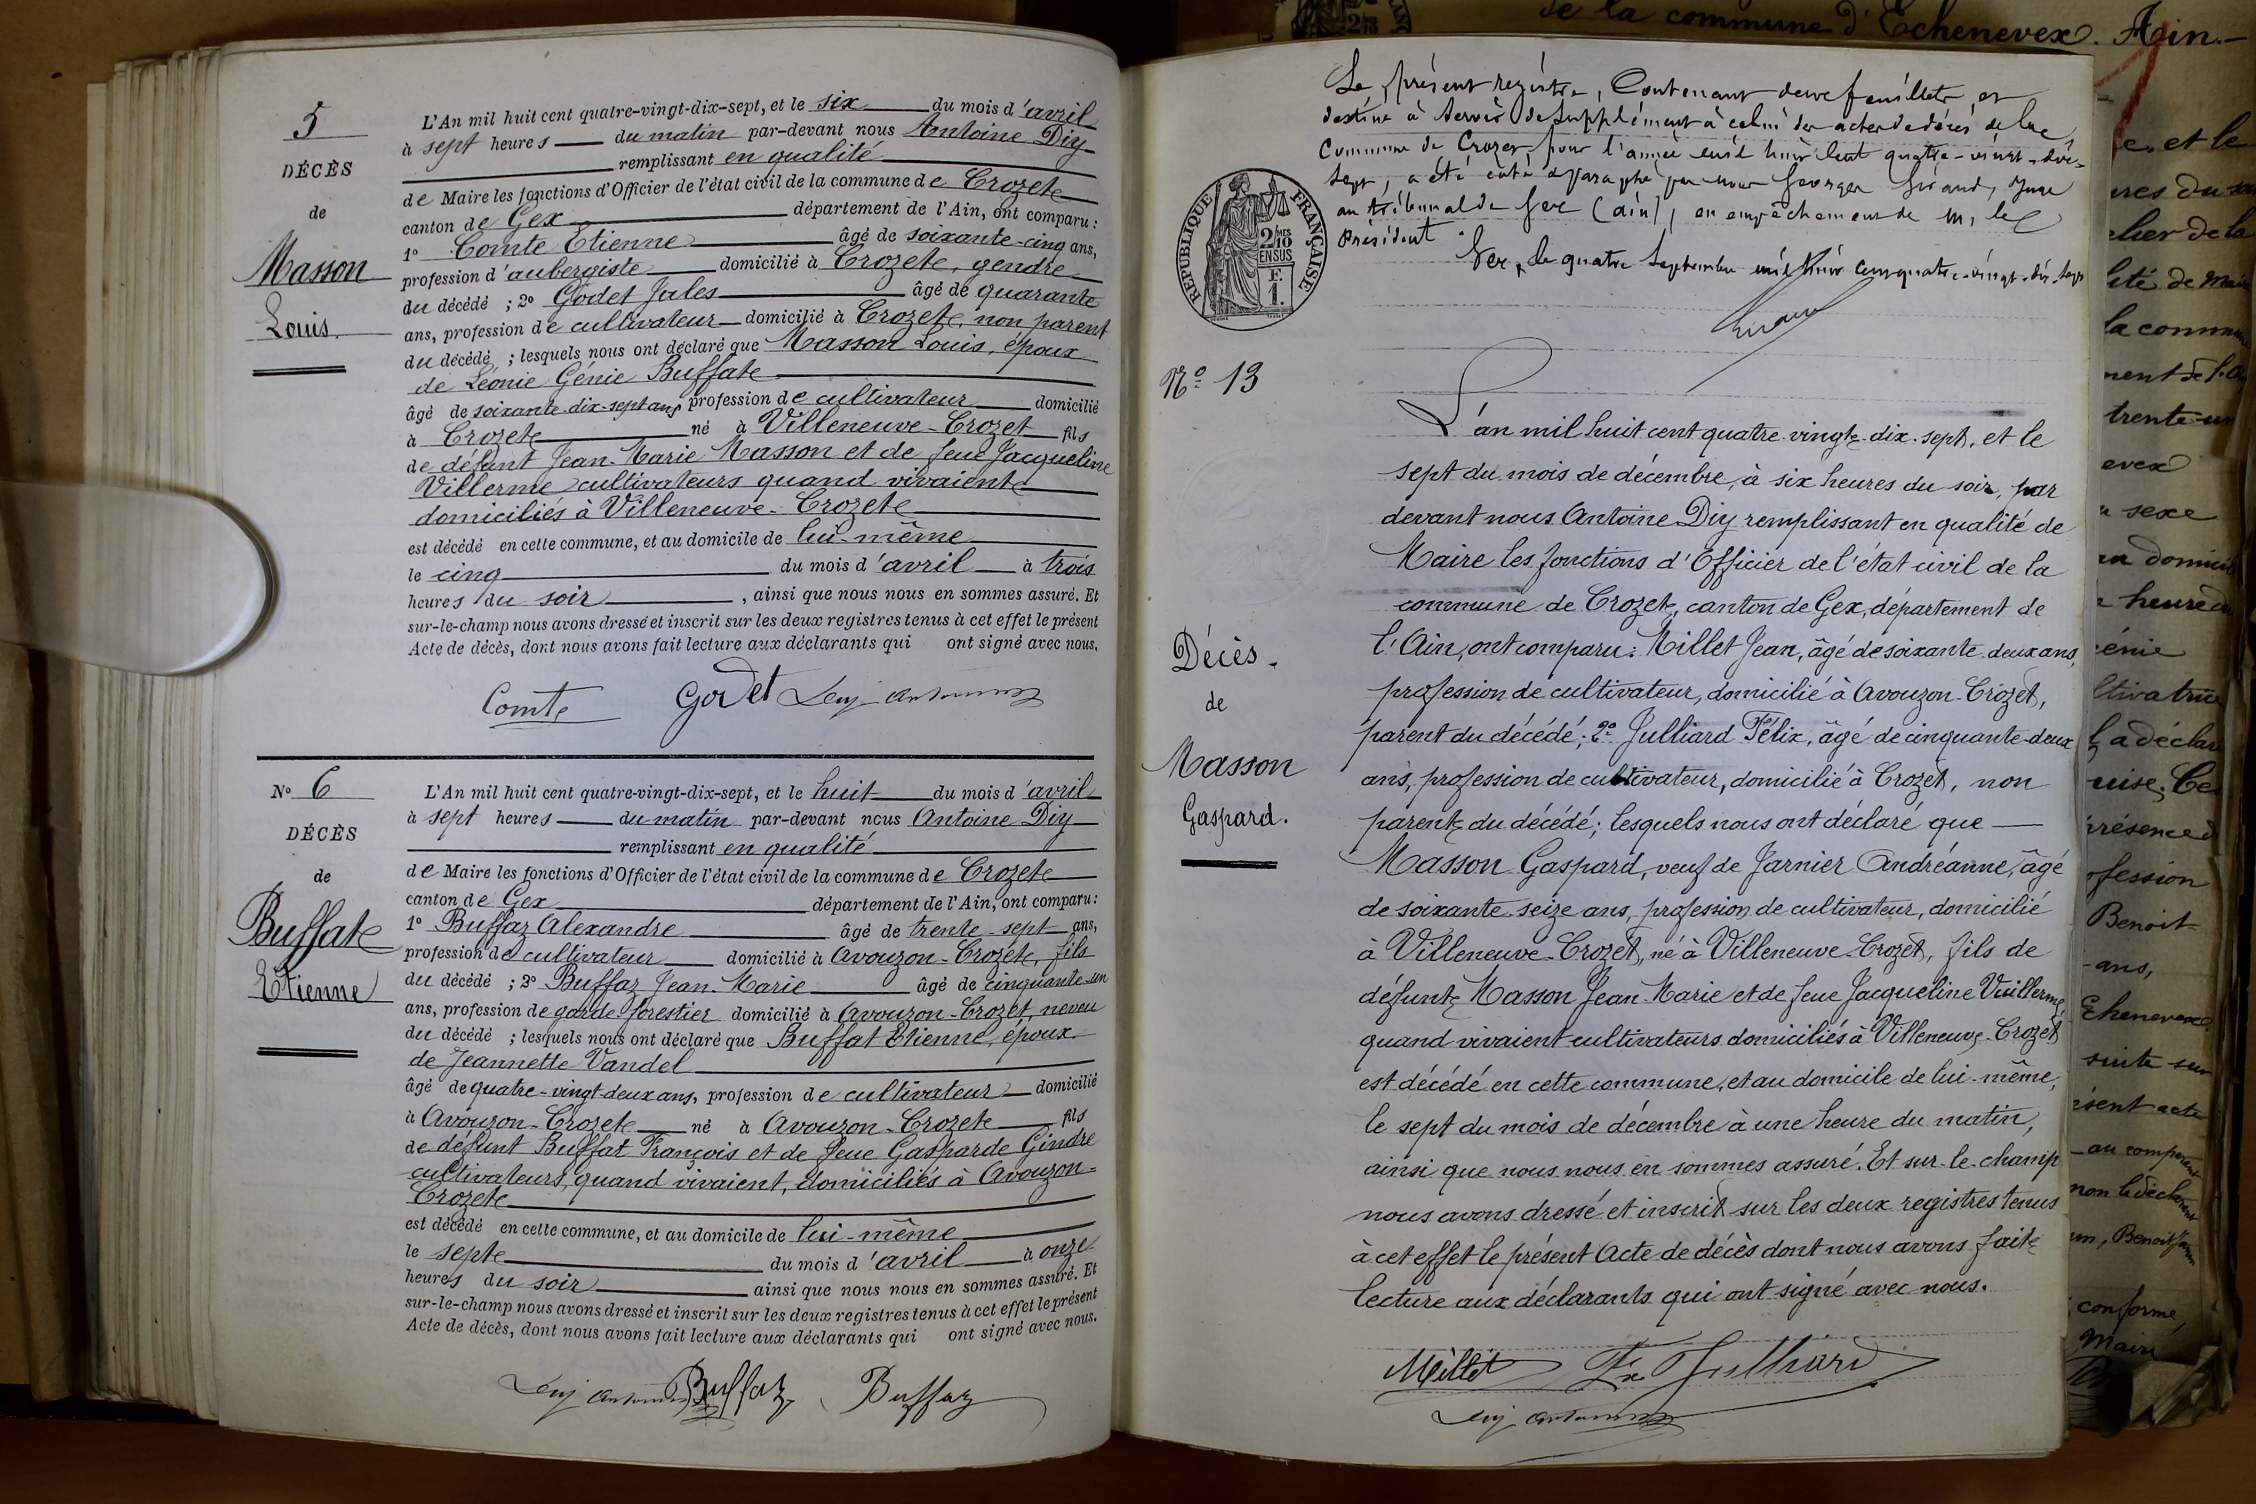 5
DÉCÈS
de
Masson
Louis.
L'An mil huit cent quatre-vingt-dix-sept, et le six du mois d'avril
à sept heures du matin par-devant nous Antoine Diy
remplissant en qualité
de Maire les fonctions d'Officier de l'état civil de la commune de Crozet
canton de Gex département de l'Ain, ont comparu :
1º Comte Etienne âgé de soixante-cinq ans,
profession d'aubergiste domicilié à Crozet, gendre
du décédé ; 2º Godet Jules âgé de quarante
ans, profession de cultivateur domicilié à Crozet, non parent
du décédé ; lesquels nous ont déclaré que Masson Louis, époux
de Léonie Génie Buffat
âgé de soixante-dix-sept ans, profession de cultivateur domicilié
à Crozet né à Villeneuve-Crozet fils
de défunt Jean-Marie Masson et de feue Jacqueline
Villerme cultivateurs quand vivaient
domiciliés à Villeneuve-Crozet
est décédé en cette commune, et au domicile de lui-même
le cinq du mois d'avril à trois
heures du soir , ainsi que nous nous en sommes assuré. Et
sur-le-champ nous avons dressé et inscrit sur les deux registres tenus à cet effet le présent
Acte de décès, dont nous avons fait lecture aux déclarants qui ont signé avec nous.
Comte Godet Diy Antoine
Nº 6
DÉCÈS
de
Buffat
Etienne
L'An mil huit cent quatre-vingt-dix-sept, et le huit du mois d'avril
à sept heures du matin par-devant nous Antoine Diy
remplissant en qualité
de Maire les fonctions d'Officier de l'état civil de la commune de Crozet
canton de Gex département de l'Ain, ont comparu :
1º Buffaz Alexandre âgé de trente-sept ans,
profession de cultivateur domicilié à Avouzon-Crozet, fils
du décédé ; 2º Buffaz Jean-Marie âgé de cinquante-un
ans, profession de garde-forestier domicilié à Avouzon-Crozet, neveu
du décédé ; lesquels nous ont déclaré que Buffat Etienne, époux
de Jeannette Vandel
âgé de quatre-vingt-deux ans, profession de cultivateur domicilié
à Avouzon-Crozet né à Avouzon-Crozet fils
de défunt Buffat François et de feue Gasparde Gindre
cultivateurs, quand vivaient, domiciliés à Avouzon-
Crozet
est décédé en cette commune, et au domicile de lui-même
le sept du mois d'avril à onze
heures du soir ainsi que nous nous en sommes assuré. Et
sur-le-champ nous avons dressé et inscrit sur les deux registres tenus à cet effet le présent
Acte de décès, dont nous avons fait lecture aux déclarants qui ont signé avec nous.
Diy Antoine Buffaz Buffaz
de la commune d'Echenevex. Ain.
Le présent registre, contenant deux feuillets, est
destiné à servir de supplément à celui des actes de décès de la
commune de Crozet pour l'année mil huit cent quatre-vingt-dix-
sept, a été coté & paraphé par nous Georges Giraud, Juge
au tribunal de Gex (Ain), en empêchement de M. le
Président.
Gex, le quatre Septembre mil huit cent quatre-vingt-dix-sept
RÉPUBLIQUE FRANÇAISE
2/10 MES EN SUS
F. 1.
Nº 13
Décès
de
Masson
Gaspard.
L'an mil huit cent quatre-vingt-dix-sept, et le
sept du mois de décembre, à six heures du soir, par
devant nous Antoine Diy remplissant en qualité de
Maire les fonctions d'Officier de l'état civil de la
commune de Crozet, canton de Gex, département de
l'Ain, ont comparu : Millet Jean, âgé de soixante-deux ans,
profession de cultivateur, domicilié à Avouzon-Crozet,
parent du décédé ; 2º Julliard Félix, âgé de cinquante-deux
ans, profession de cultivateur, domicilié à Crozet, non
parent du décédé ; lesquels nous ont déclaré que
Masson Gaspard, veuf de Jarnier Andréanne, âgé
de soixante-seize ans, profession de cultivateur, domicilié
à Villeneuve-Crozet, né à Villeneuve-Crozet, fils de
défunt Masson Jean-Marie et de feue Jacqueline Vuillerme,
quand vivaient cultivateurs domiciliés à Villeneuve-Crozet
est décédé en cette commune, et au domicile de lui-même,
le sept du mois de décembre à une heure du matin,
ainsi que nous nous en sommes assuré. Et sur-le-champ
nous avons dressé et inscrit sur les deux registres tenus
à cet effet le présent Acte de décès dont nous avons fait
lecture aux déclarants qui ont signé avec nous.
Millet Fx Julliard
Diy Antoine
et le
la
de Mair
trente-un
sexe
domicil
heure du
cultivatrice
déclar
présence d
profession
Benoit
ans,
Echenevex
suite sur
présent acte
au comparant
non le déclarant
Benoit
conforme,
Maire